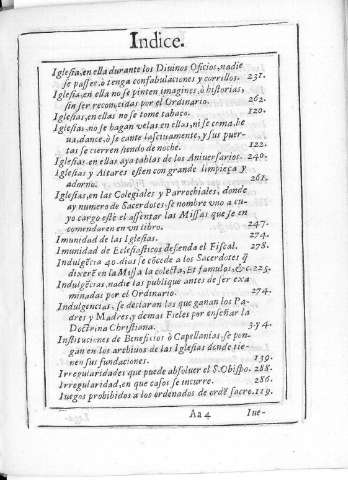 Indice.
Iglesia, en ella durante los Diuinos Oficios, nadie
se passee, ò tenga confabulaciones y corrillos. 231.
Iglesia, en ella no se pinten imagines, ò historias,
sin ser reconocidas por el Ordinario. 262.
Iglesias, en ellas no se tome tabaco. 120.
Iglesias, no se hagan velas en ellas, ni se coma, be
ua, dance, ò se cante lasciuamente, y sus puer-
tas se cierren siendo de noche. 122.
Iglesias, en ellas aya tablas de los Aniuersarios. 240.
Iglesias y Altares esten con grande limpieça y
adorno. 261.
Iglesias, en las Colegiales y Parrochiales, donde
ay numero de Sacerdotes, se nombre vno a cu-
yo cargo estè el assentar las Missas que se en
comendaren en vn libro. 247.
Imunidad de las Iglesias. 274.
Imunidad de Eclesiasticos defienda el Fiscal. 278.
Indulgẽcia 40. dias se cõcede a los Sacerdotes q̃
dixerẽ en la Missa la colecta, Et famulos, &c. 225.
Indulgẽcias, nadie las publique antes de ser exa
minadas por el Ordinario. 274.
Indulgencias, se declaran los que ganan los Pa-
dres y Madres, y demas Fieles por enseñar la
Doctrina Christiana. 394.
Instituciones de Beneficios ò Capellanias, se pon-
gan en los archiuos de las Iglesias donde tie-
nen sus fundaciones. 139.
Irregularidades que puede absoluer el S. Obispo. 288.
Irregularidad, en que casos se incurre. 286.
Iuegos prohibidos a los ordenados de ordẽ sacro. 119.
Aa 4 Iue-